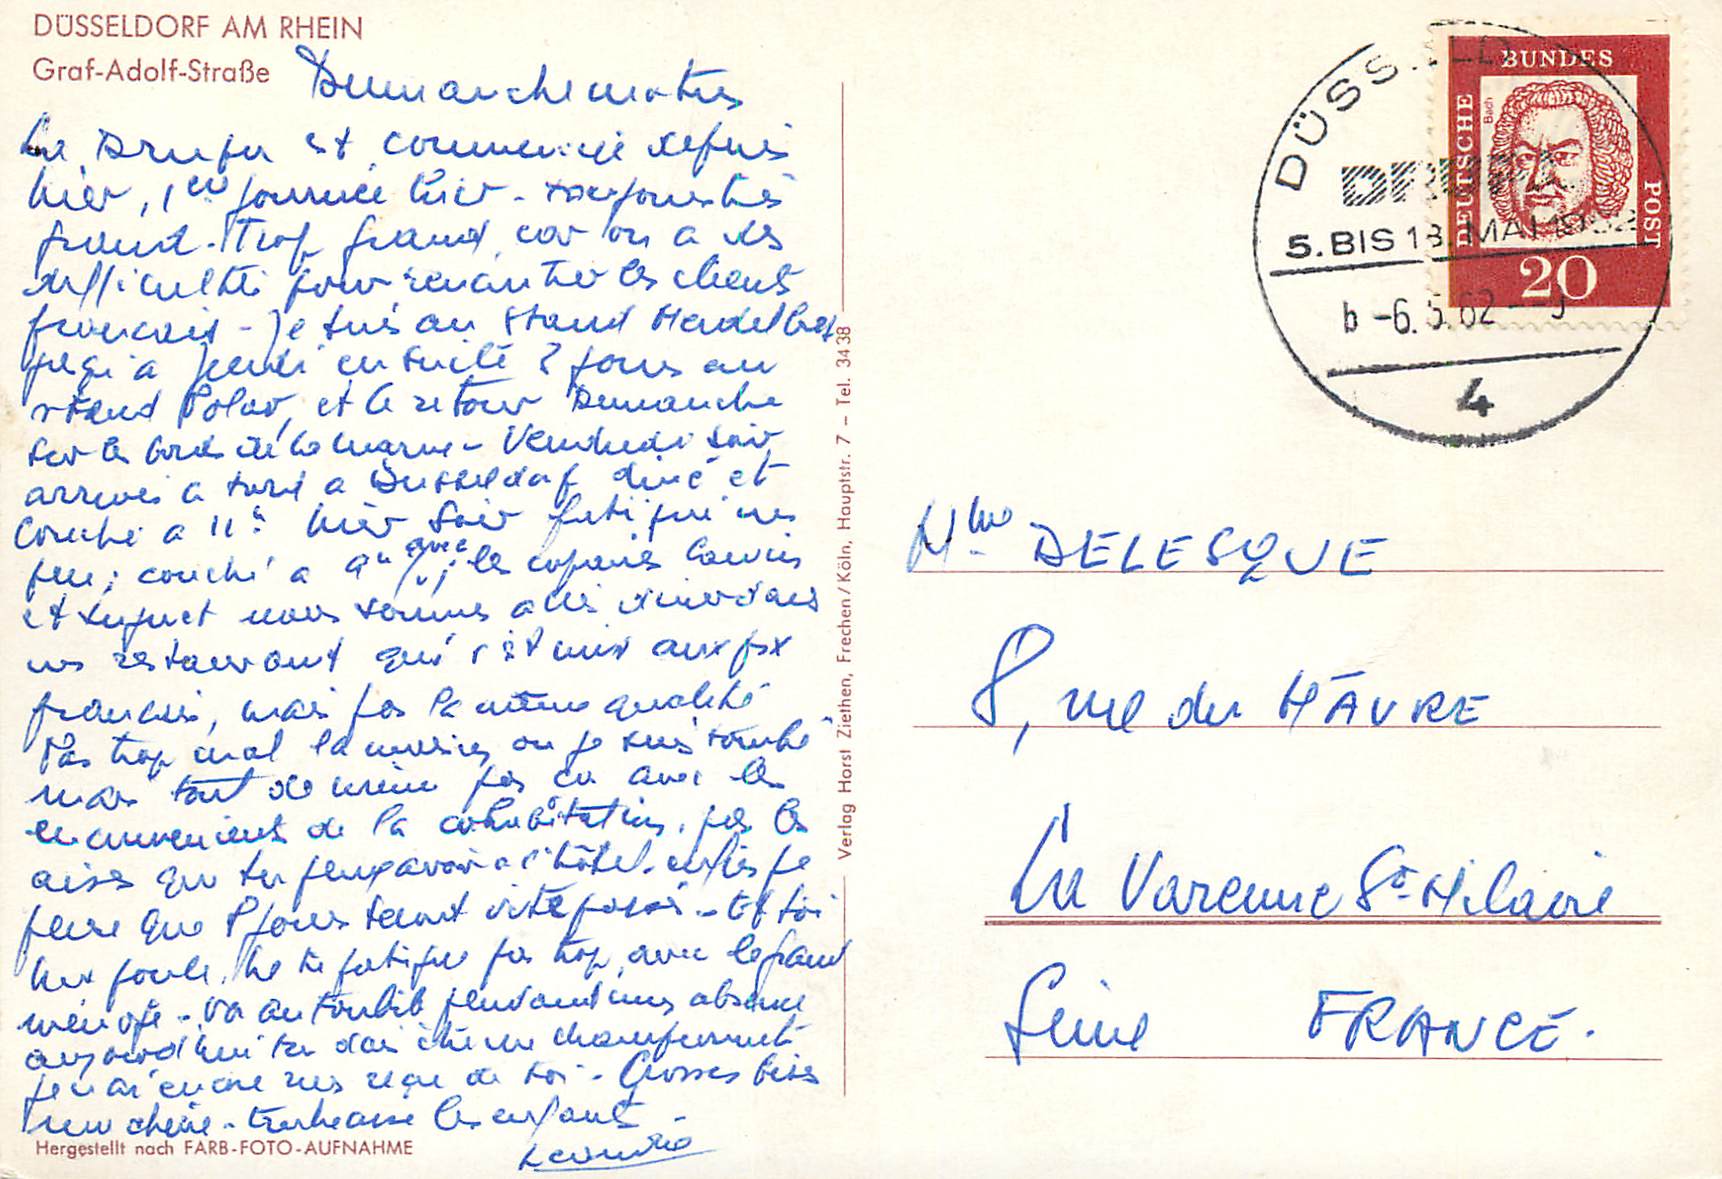 DÜSSELDORF AM RHEIN
Graf-Adolf-Straße
Dimanche matin
La Drupa est commencée depuis
hier, 1ere journée hier - toujours très
grand. Trop grand, car on a des
difficultés pour rencontrer les clients
français - Je suis au Stand Heidelberg
jusqu'a Jeudi ensuite 2 jours au
stand Polar, et le retour Dimanche
sur les bords de la Marne - Vendredi soir
arrivés a tard a Dusseldorf diné et
couché a 11h. hier soir fatigué un
peu, couché a 9h avec les copains
et Huguet nous sommes allés diner dans
un restaurant qui s'est mis aux prix
français, mais pas la même qualité
Pas trop mal la maison ou je suis tombé
mais tout de même pas
inconvenients de la cohabitation, pas les
aises que tu peux avoir a l'hôtel. enfin je
pense que 8 jours seront vite passés - Et toi
ma poule, ne te fatigue pas trop, avec le grand
ménage - Va au Toubib pendant mon absence
aujourd'hui tu dois être un changement
je n'ai encore rien reçu de toi - Grosses bises
mon chérie - embrasse les enfants -
Hergestellt nach FARB-FOTO-AUFNAHME
Verlag Horst Ziethen, Frechen/Köln, Hauptstr. 7 – Tel. 3438
DÜSSELD
DRUPA
5. BIS 18. MAI 1962
b -6.5.62 - 9
4
DEUTSCHE BUNDES POST
Bach
20
Mme DELESQUE
8, rue du HÂVRE
La Varenne St-Hilaire
Seine FRANCE.